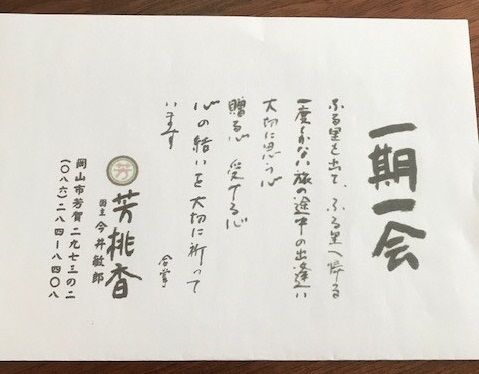 一期一会
ふる里を出て、ふる里へ帰る
一度しかない旅の途中の出逢い
大切に思う心
贈る心 受ける心
心の結いを大切に祈って
います
合掌
芳
芳桃香
園主 今井敏郎
岡山市芳賀二九七三の二
(〇八六)二八四ー八四〇八